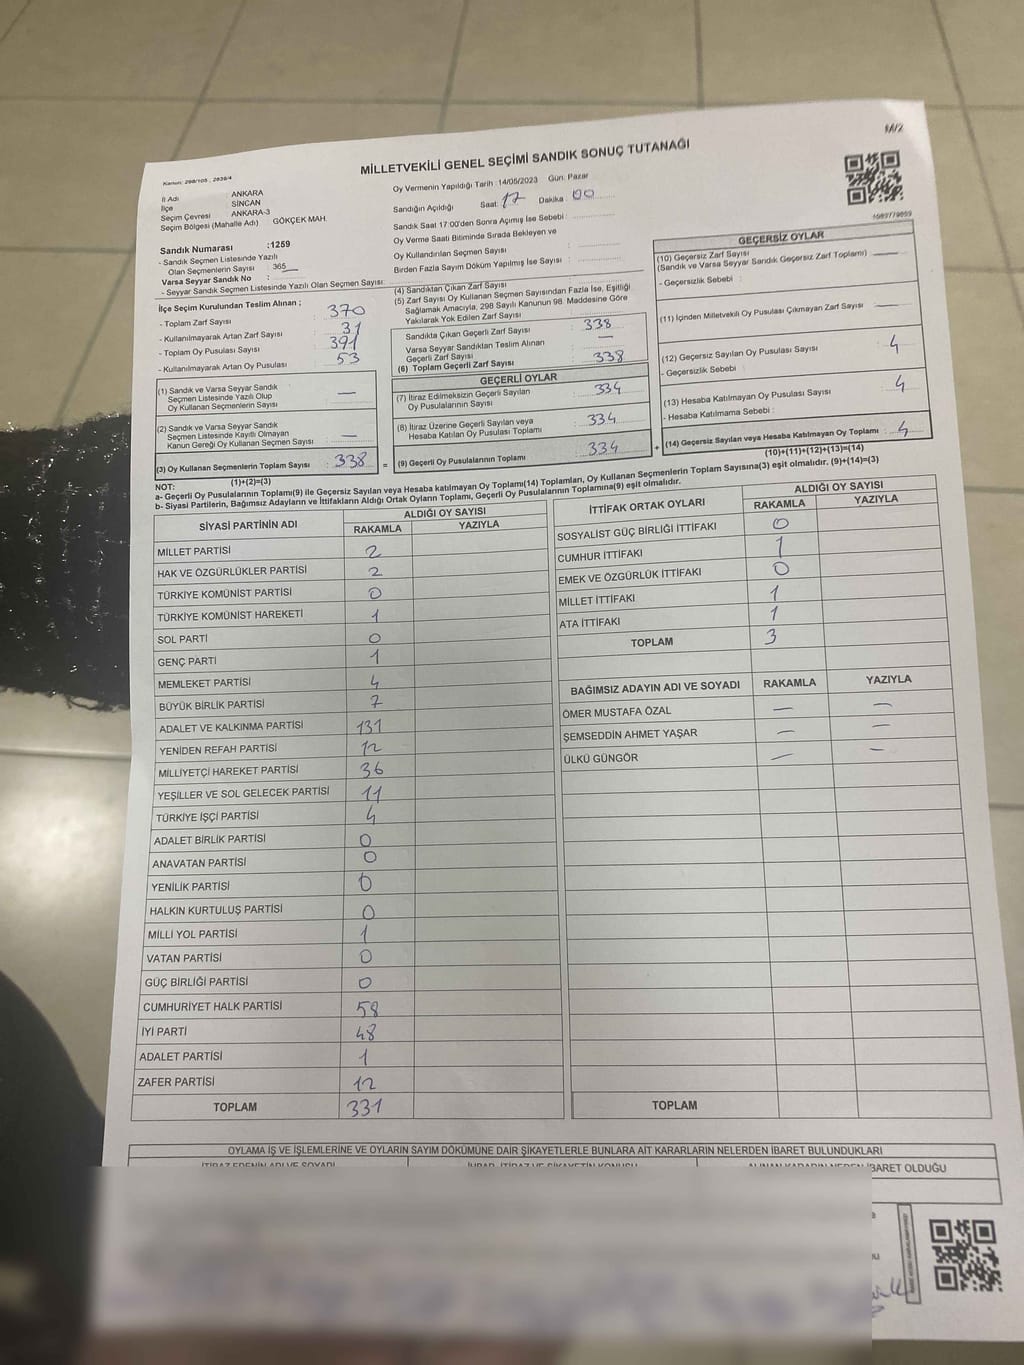 M/2
MİLLETVEKİLİ GENEL SEÇİMİ SANDIK SONUÇ TUTANAĞI
Kanun: 298/105 : 2839/4
İl Adı : ANKARA
İlçe : SİNCAN
Seçim Çevresi : ANKARA-3
Seçim Bölgesi (Mahalle Adı) GÖKÇEK MAH.
Sandık Numarası :1259
- Sandık Seçmen Listesinde Yazılı
Olan Seçmenlerin Sayısı : 365
Varsa Seyyar Sandık No :
- Seyyar Sandık Seçmen Listesinde Yazılı Olan Seçmen Sayısı:
Oy Vermenin Yapıldığı Tarih :14/05/2023 Gün: Pazar
Sandığın Açıldığı Saat: 17 Dakika : 00
Sandık Saat 17:00'den Sonra Açımış İse Sebebi :
Oy Verme Saati Bitiminde Sırada Bekleyen ve
Oy Kullandırılan Seçmen Sayısı :
Birden Fazla Sayım Döküm Yapılmış İse Sayısı :
1089779859
İlçe Seçim Kurulundan Teslim Alınan ;
- Toplam Zarf Sayısı : 370
- Kullanılmayarak Artan Zarf Sayısı : 31
- Toplam Oy Pusulası Sayısı : 391
- Kullanılmayarak Artan Oy Pusulası : 53
(1) Sandık ve Varsa Seyyar Sandık
Seçmen Listesinde Yazılı Olup
Oy Kullanan Seçmenlerin Sayısı : —
(2) Sandık ve Varsa Seyyar Sandık
Seçmen Listesinde Kayıtlı Olmayan
Kanun Gereği Oy Kullanan Seçmen Sayısı : —
(3) Oy Kullanan Seçmenlerin Toplam Sayısı : 338
(1)+(2)=(3)
(4) Sandıktan Çıkan Zarf Sayısı :
(5) Zarf Sayısı Oy Kullanan Seçmen Sayısından Fazla İse, Eşitliği
Sağlamak Amacıyla, 298 Sayılı Kanunun 98. Maddesine Göre
Yakılarak Yok Edilen Zarf Sayısı :
Sandıkta Çıkan Geçerli Zarf Sayısı : 338
Varsa Seyyar Sandıktan Teslim Alınan
Geçerli Zarf Sayısı : —
(6) Toplam Geçerli Zarf Sayısı : 338
GEÇERLİ OYLAR
(7) İtiraz Edilmeksizin Geçerli Sayılan
Oy Pusulalarının Sayısı : 334
(8) İtiraz Üzerine Geçerli Sayılan veya
Hesaba Katılan Oy Pusulası Toplamı : 334
= (9) Geçerli Oy Pusulalarının Toplamı : 334 +
GEÇERSİZ OYLAR
(10) Geçersiz Zarf Sayısı
(Sandık ve Varsa Seyyar Sandık Geçersiz Zarf Toplamı) —
- Geçersizlik Sebebi :
(11) İçinden Milletvekili Oy Pusulası Çıkmayan Zarf Sayısı —
(12) Geçersiz Sayılan Oy Pusulası Sayısı : 4
- Geçersizlik Sebebi :
(13) Hesaba Katılmayan Oy Pusulası Sayısı : 4
- Hesaba Katılmama Sebebi :
(14) Geçersiz Sayılan veya Hesaba Katılmayan Oy Toplamı : 4
(10)+(11)+(12)+(13)=(14)
NOT:
a- Geçerli Oy Pusulalarının Toplamı(9) ile Geçersiz Sayılan veya Hesaba katılmayan Oy Toplamı(14) Toplamları, Oy Kullanan Seçmenlerin Toplam Sayısına(3) eşit olmalıdır. (9)+(14)=(3)
b- Siyasi Partilerin, Bağımsız Adayların ve İttifakların Aldığı Ortak Oyların Toplamı, Geçerli Oy Pusulalarının Toplamına(9) eşit olmalıdır.
SİYASİ PARTİNİN ADI ALDIĞI OY SAYISI
RAKAMLA YAZIYLA
MİLLET PARTİSİ 2
HAK VE ÖZGÜRLÜKLER PARTİSİ 2
TÜRKİYE KOMÜNİST PARTİSİ 0
TÜRKİYE KOMÜNİST HAREKETİ 1
SOL PARTİ 0
GENÇ PARTİ 1
MEMLEKET PARTİSİ 4
BÜYÜK BİRLİK PARTİSİ 7
ADALET VE KALKINMA PARTİSİ 131
YENİDEN REFAH PARTİSİ 12
MİLLİYETÇİ HAREKET PARTİSİ 36
YEŞİLLER VE SOL GELECEK PARTİSİ 11
TÜRKİYE İŞÇİ PARTİSİ 4
ADALET BİRLİK PARTİSİ 0
ANAVATAN PARTİSİ 0
YENİLİK PARTİSİ 0
HALKIN KURTULUŞ PARTİSİ 0
MİLLİ YOL PARTİSİ 1
VATAN PARTİSİ 0
GÜÇ BİRLİĞİ PARTİSİ 0
CUMHURİYET HALK PARTİSİ 58
İYİ PARTİ 48
ADALET PARTİSİ 1
ZAFER PARTİSİ 12
TOPLAM 331
İTTİFAK ORTAK OYLARI ALDIĞI OY SAYISI
RAKAMLA YAZIYLA
SOSYALİST GÜÇ BİRLİĞİ İTTİFAKI 0
CUMHUR İTTİFAKI 1
EMEK VE ÖZGÜRLÜK İTTİFAKI 0
MİLLET İTTİFAKI 1
ATA İTTİFAKI 1
TOPLAM 3
BAĞIMSIZ ADAYIN ADI VE SOYADI RAKAMLA YAZIYLA
ÖMER MUSTAFA ÖZAL — —
ŞEMSEDDİN AHMET YAŞAR — —
ÜLKÜ GÜNGÖR — —
TOPLAM
OYLAMA İŞ VE İŞLEMLERİNE VE OYLARIN SAYIM DÖKÜMÜNE DAİR ŞİKAYETLERLE BUNLARA AİT KARARLARIN NELERDEN İBARET BULUNDUKLARI
İTİRAZ EDENİN ADI VE SOYADI
İBARET OLDUĞU